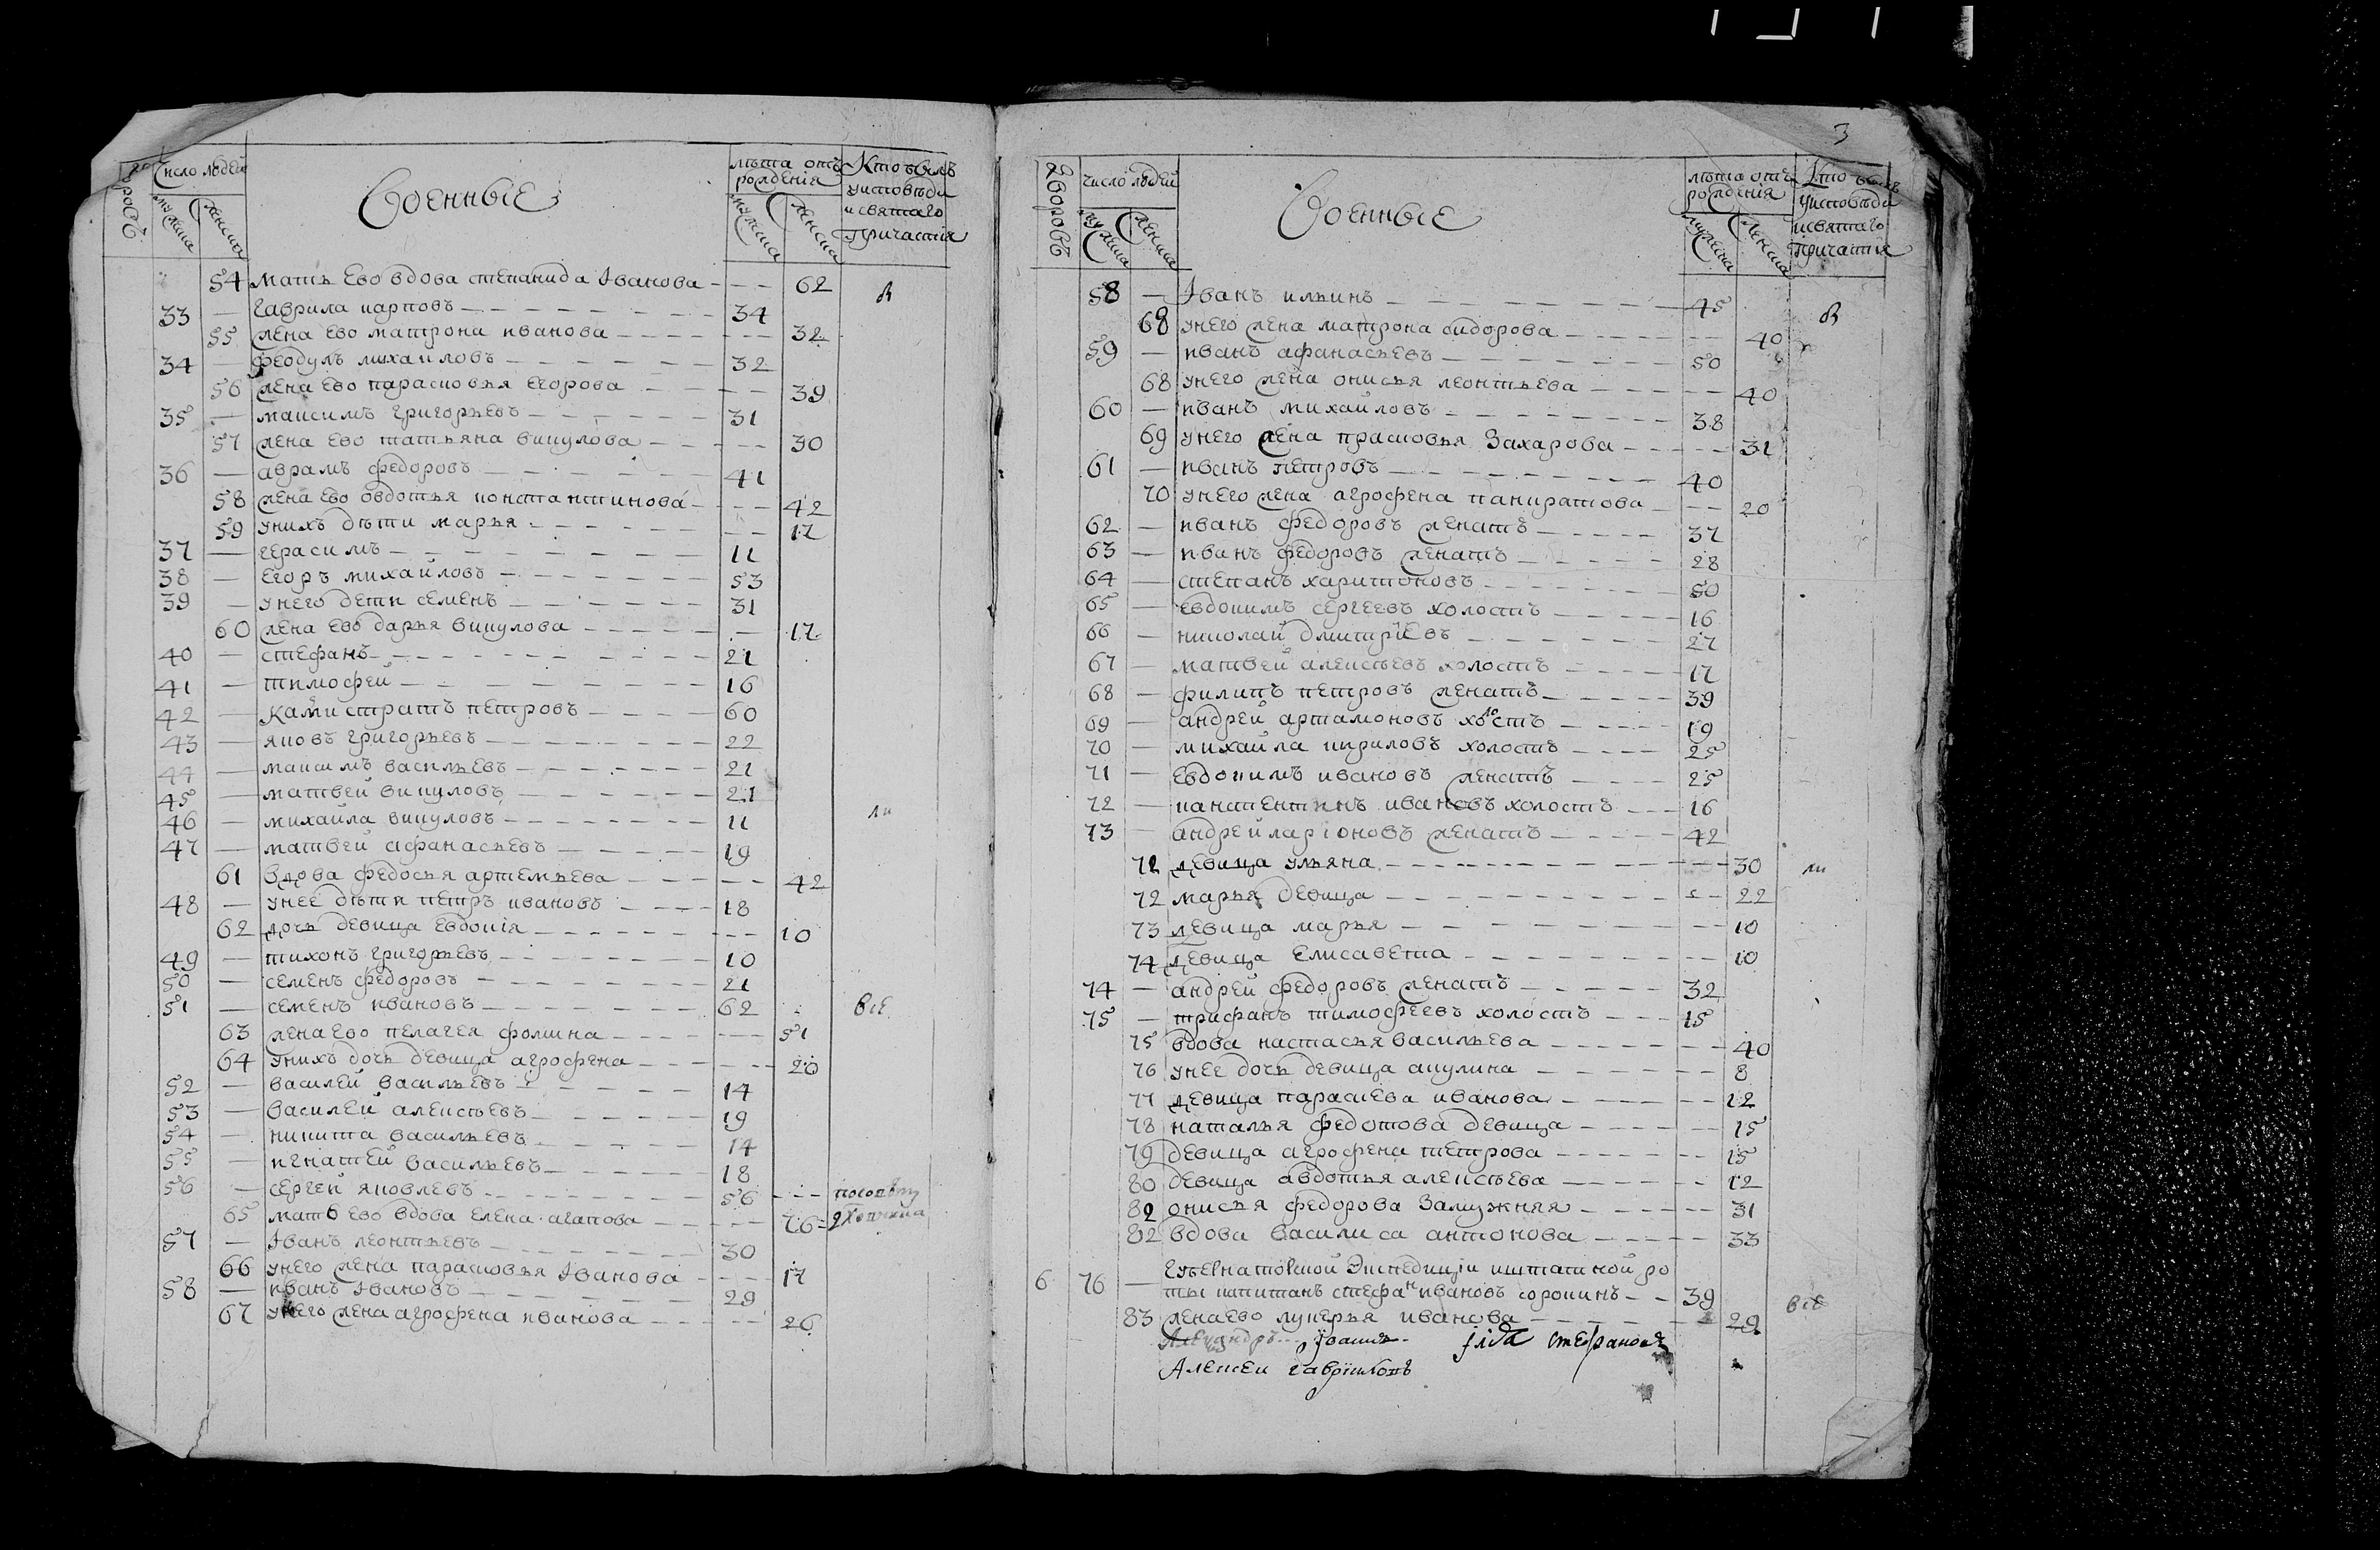 дворовъ
Число людей
мужеска
женска
Военныіе
лѣта отъ рожденія
мужеска
женска
Кто былъ
уисповѣди
и святаго
Причастія
54 мать Ево вдова степанида Іванова 62
33 — гаврила карповъ 34
55 жена ево матрона иванова 32
34 — феодулъ михаиловъ 32
56 жена ево парасковья егорова 39
35 — максимъ григорьевъ 31
57 жена ево татьяна викулова 30
36 — аврамъ федоровъ 41
58 жена ево овдотья константинова 42
59 унихъ дѣти марья 17
37 — герасимъ 11
38 — Егоръ михаиловъ 53
39 — унего дети семенъ 31
60 жена ево дарья викулова 17
40 — стефанъ 21
41 — тимофей 16
42 — Калистратъ петровъ 60
43 — яковъ григорьевъ 22
44 — максимъ васильевъ 21
45 — матвей викуловъ 21
46 — михайла викуловъ 11
47 — матвей афанасьевъ 19
61 вдова федосья артемьева 42
48 — унее дѣти петръ ивановъ 18
62 дочь девица Евдокія 10
49 — тихонъ григорьевъ 10
50 — семенъ федоровъ 21
51 — семенъ ивановъ 62 всѣ
63 жена ево пелагея фомина 51
64 унихъ дочь девица агрофена 20
52 — василей васильевъ 14
53 — василей алексѣевъ 19
54 — никита васильевъ 14
55 — игнатей васильевъ 18
56 — сергей яковлевъ 56
65 мать ево вдова елена агапова 76
57 — Іванъ леонтьевъ 30
66 унего жена парасковья Іванова 17
58 — иванъ Івановъ 29
67 унего жена агрофена иванова 26
3
Дворовъ
число людей
мужеска
женска
Военныіе
лѣта отъ рожденія
мужеска
женска
Кто былъ
уисповѣди
исвятаго
Причастія
58 — Іванъ ильинъ 45
68 унего жена матрона сидорова 40
59 — иванъ афанасьевъ 50
68 унего жена онисья леонтьева 40
60 — иванъ михаиловъ 38
69 унего жена прасковья Захарова 31
61 — иванъ петровъ 40
70 унего жена агрофена панкратова 20
62 — иванъ федоровъ женатъ 37
63 — иванъ федоровъ женатъ 28
64 — степанъ харитоновъ 50
65 — Евдокимъ сергеевъ холостъ 16
66 — николай дмитріевъ 27
67 — матвей алексѣевъ холостъ 17
68 — филипъ петровъ женатъ 39
69 — андрей артамоновъ холостъ 19
70 — михайла кириловъ холостъ 25
71 — Евдокимъ ивановъ женатъ 25
72 — канстентинъ ивановъ холостъ 16
73 — андрей ларіоновъ женатъ 42
71 девица ульяна 30
72 марья девица 22
73 девица марья 10
74 девица Елисавета 10
74 — андрей федоровъ женатъ 32
75 — трифанъ тимофеевъ холостъ 15
75 вдова настасья васильева 40
76 унее дочь девица акулина 8
77 девица параскева иванова 12
78 наталья федотова девица 15
79 девица агрофена петрова 15
80 девица авдотья алексѣева 12
82 онисья федорова Замужняя 31
82 вдова василиса антонова 33
Губернаторской Экспедиціи штатной ро
6 76 — ты капитанъ стефанъ ивановъ сорокинъ 39
83 жена ево лукерья иванова 29 всѣ
Александръ
стефановъ
Алексеи гавриловъ